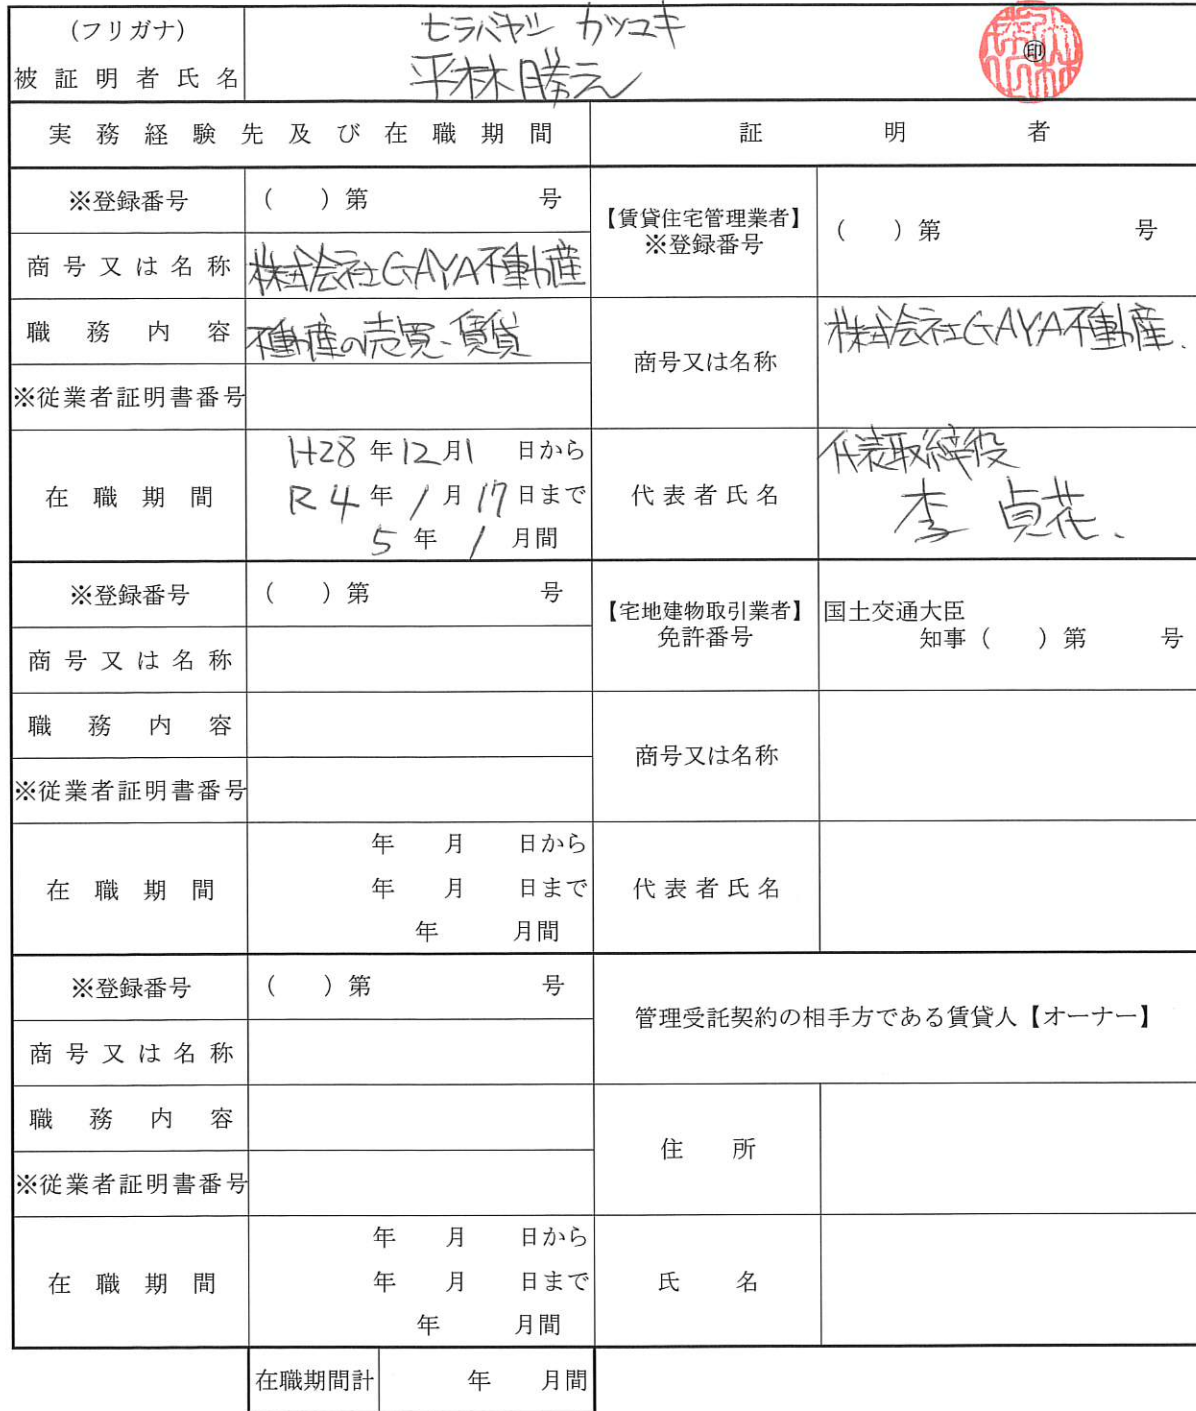 (フリガナ) セラバヤシ カツユキ
被証明者氏名 平林勝之 ㊞
実務経験先及び在職期間 証明者
※登録番号 ( ) 第 号
【賃貸住宅管理業者】
※登録番号 ( ) 第 号
商号又は名称 株式会社GAYA不動産
職務内容 不動産の売買・賃貸
商号又は名称 株式会社GAYA不動産.
※従業者証明書番号
在職期間
H28年12月1日から
R4年1月17日まで
5年1月間
代表者氏名
代表取締役
李 貞花.
※登録番号 ( ) 第 号
【宅地建物取引業者】
免許番号
国土交通大臣
知事 ( ) 第 号
商号又は名称
職務内容
商号又は名称
※従業者証明書番号
在職期間
年 月 日から
年 月 日まで
年 月間
代表者氏名
※登録番号 ( ) 第 号
管理受託契約の相手方である賃貸人【オーナー】
商号又は名称
職務内容
住所
※従業者証明書番号
在職期間
年 月 日から
年 月 日まで
年 月間
氏名
在職期間計 年 月間